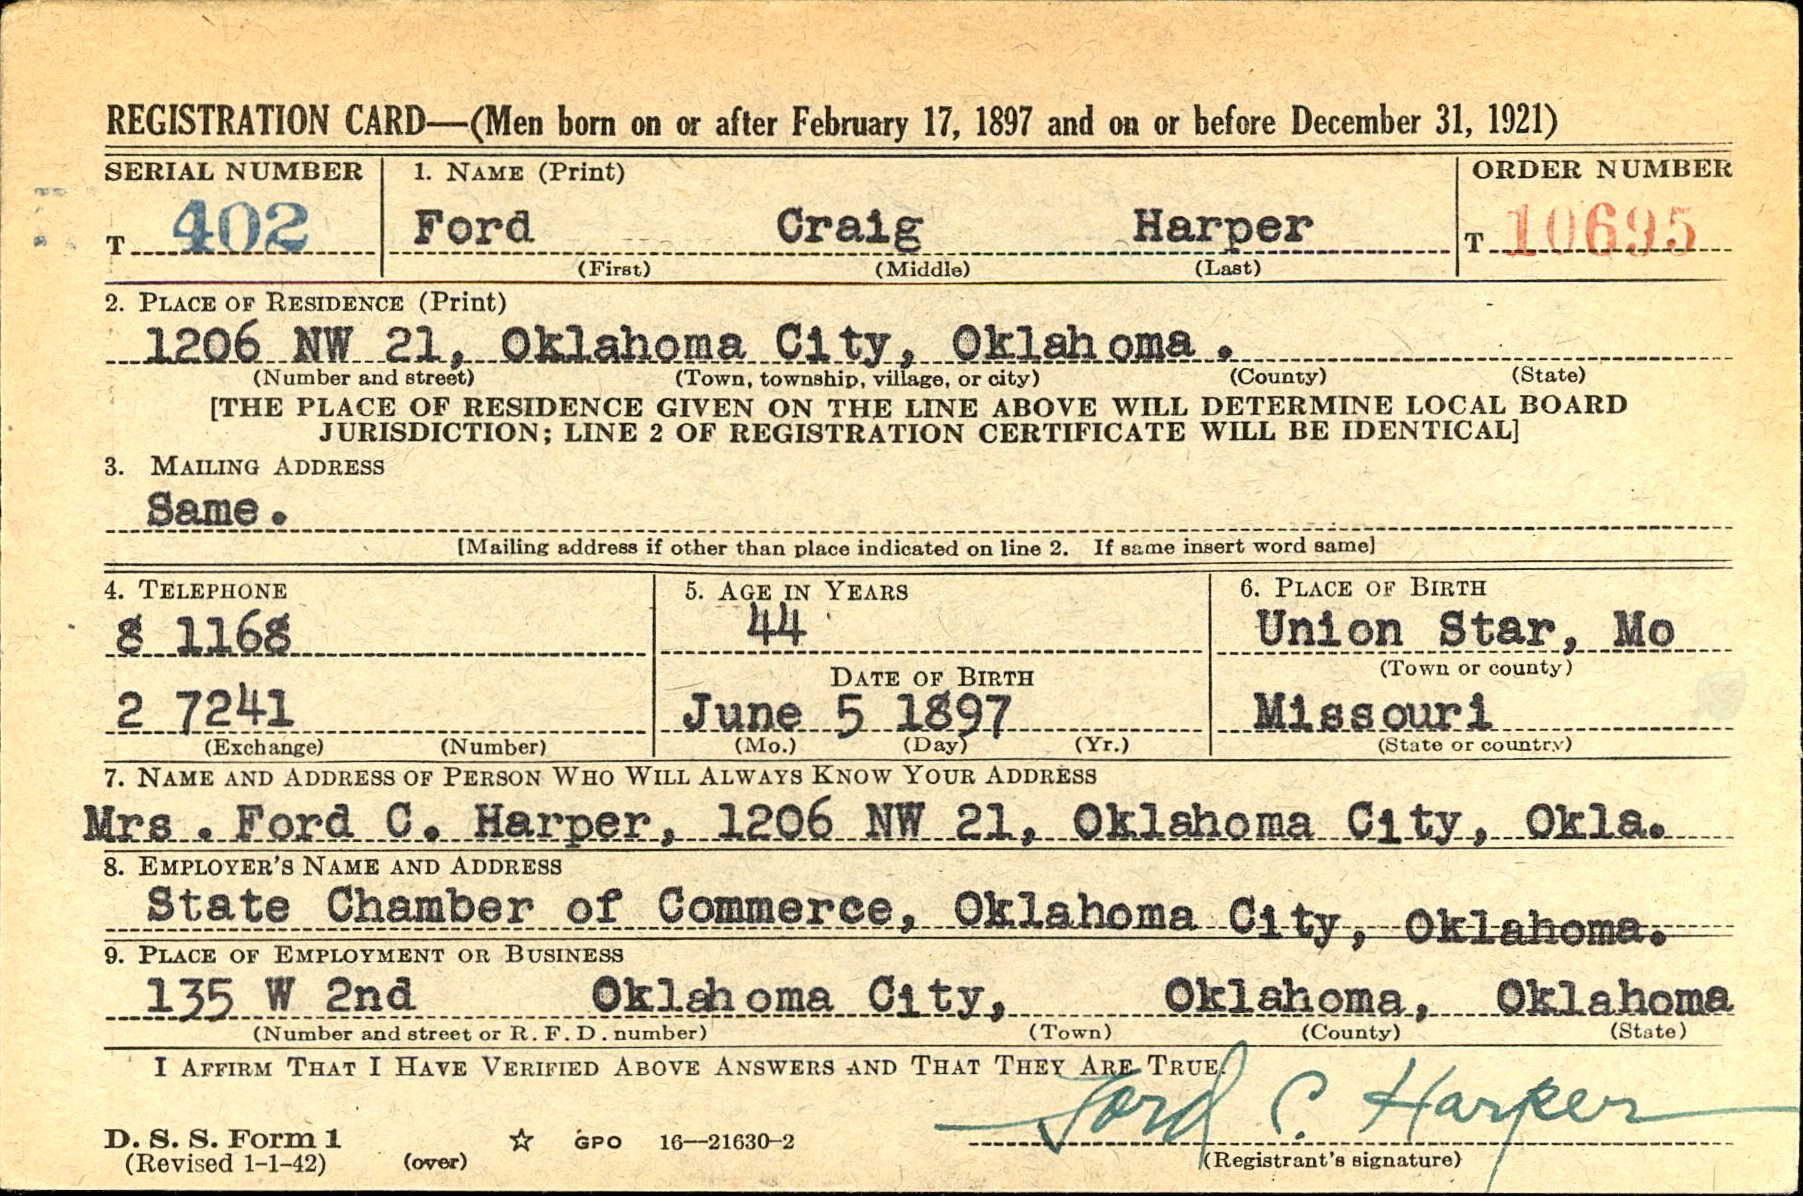 REGISTRATION CARD—(Men born on or after February 17, 1897 and on or before December 31, 1921)
SERIAL NUMBER 1. NAME (Print) ORDER NUMBER
T 402 Ford Craig Harper T 10695
(First) (Middle) (Last)
2. PLACE OF RESIDENCE (Print)
1206 NW 21, Oklahoma City, Oklahoma.
(Number and street) (Town, township, village, or city) (County) (State)
[THE PLACE OF RESIDENCE GIVEN ON THE LINE ABOVE WILL DETERMINE LOCAL BOARD
JURISDICTION; LINE 2 OF REGISTRATION CERTIFICATE WILL BE IDENTICAL]
3. MAILING ADDRESS
Same.
[Mailing address if other than place indicated on line 2. If same insert word same]
4. TELEPHONE 5. AGE IN YEARS 6. PLACE OF BIRTH
8 1168 44 Union Star, Mo
(Town or county)
DATE OF BIRTH
2 7241 June 5 1897 Missouri
(Exchange) (Number) (Mo.) (Day) (Yr.) (State or country)
7. NAME AND ADDRESS OF PERSON WHO WILL ALWAYS KNOW YOUR ADDRESS
Mrs. Ford C. Harper, 1206 NW 21, Oklahoma City, Okla.
8. EMPLOYER'S NAME AND ADDRESS
State Chamber of Commerce, Oklahoma City, Oklahoma.
9. PLACE OF EMPLOYMENT OR BUSINESS
135 W 2nd Oklahoma City, Oklahoma, Oklahoma
(Number and street or R. F. D. number) (Town) (County) (State)
I AFFIRM THAT I HAVE VERIFIED ABOVE ANSWERS AND THAT THEY ARE TRUE.
Ford C. Harper
D. S. S. Form 1 ☆ GPO 16—21630-2
(Revised 1-1-42) (over) (Registrant's signature)